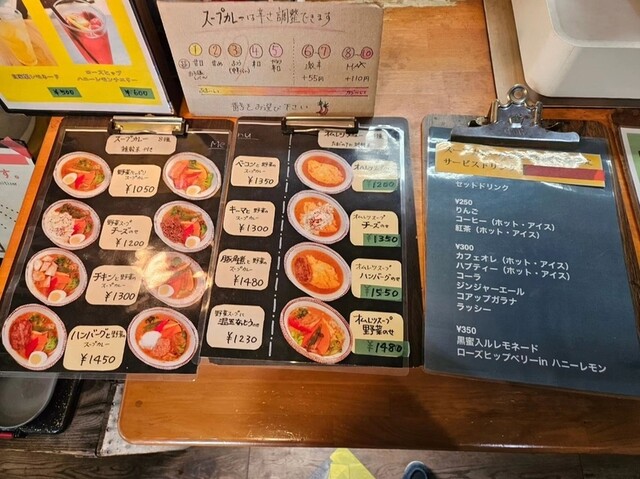 スープカレーは辛さ調整できます
① ② ③ ④ ⑤ ⑥~⑦ ⑧~⑩
+55円
+110円
ローズヒップ
ハニーレモンサニー
¥500
¥600
スープカレー
野菜たっぷり
スープカレー
¥1050
野菜スープ
チーズのせ
¥1200
チキンと野菜の
スープカレー
¥1300
ハンバーグと野菜の
スープカレー
¥1450
Menu
ベーコンと野菜の
¥1350
キーマと野菜の
¥1300
豚角煮と野菜の
スープカレー
¥1480
野菜スープに
温玉なっとうのせ
¥1230
オムレツスープ
¥1200
オムレツスープ
チーズのせ
¥1350
オムレツスープ
ハンバーグのせ
¥1550
オムレツスープ
野菜のせ
¥1480
サービスドリンク
セットドリンク
¥250
りんご
コーヒー(ホット・アイス)
紅茶(ホット・アイス)
¥300
カフェオレ(ホット・アイス)
ハブティー(ホット・アイス)
コーラ
ジンジャーエール
コアップガラナ
ラッシー
¥350
黒蜜入ルレモネード
ローズヒップベリーin ハニーレモン